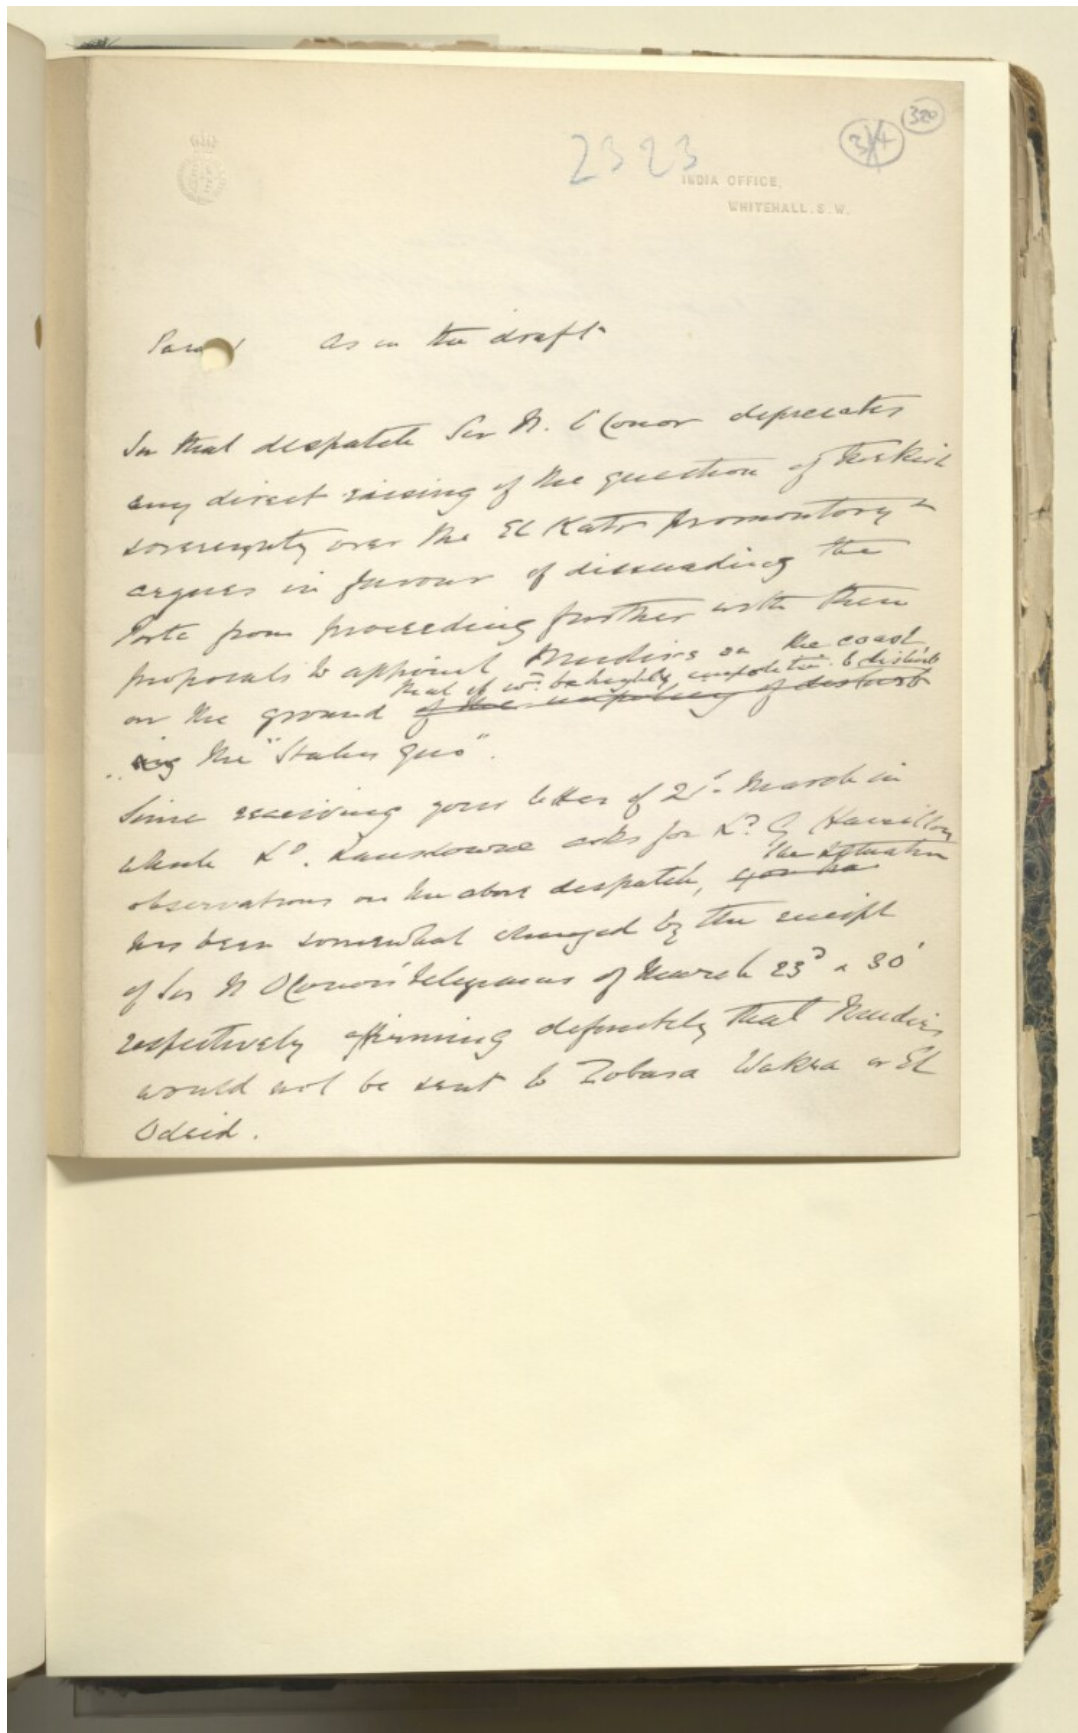 320
3/4
2323
INDIA OFFICE,
WHITEHALL. S. W.
Para 1 As in the draft
In that despatch Sir N. O'Conor deprecates
any direct raising of the question of Turkish
sovereignty over the El Katr promontory &
argues in favour of dissuading the
Porte from proceeding further with their
proposals to appoint Mudirs on the coast
that it wd. be highly impolitic to disturb
on the ground of the impolicy of disturb
ing the "Status quo".
Since receiving your letter of 21st March in
which Ld. Lansdowne asks for Ld. G Hamilton
the situation
observations on the above despatch,
has been somewhat changed by the receipt
of Sir N O'Conor's telegrams of March 23d & 30
respectively affirming definitely that Mudirs
would not be sent to Zobara Wakra or El
Odeid.